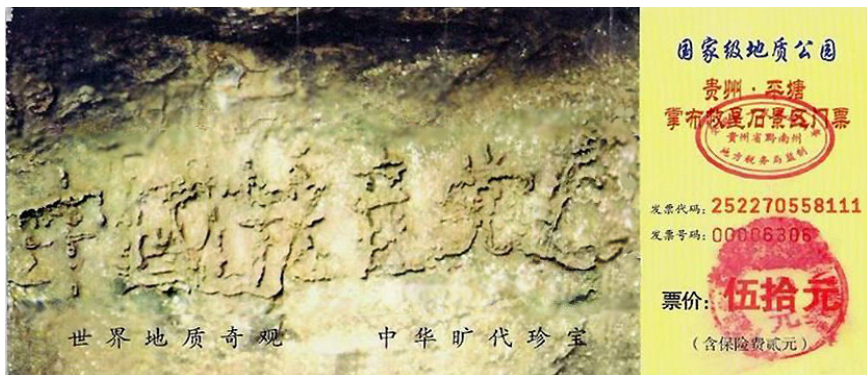 中國共産党亡
世界地质奇观 中华旷代珍宝
国家级地质公园
贵州·平塘
掌布救星石景区门票
貴州省黔南州
地方税务局监制
发票代码：252270558111
发票号码：00006306
票价：伍拾元
（含保险费贰元）